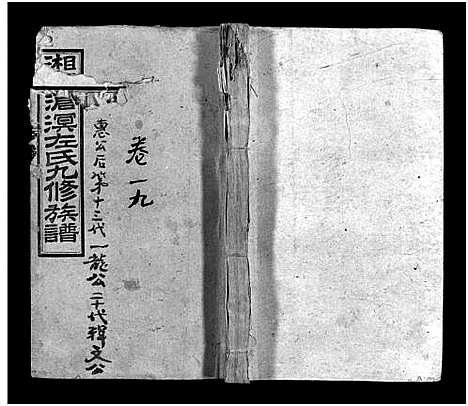 湘
滄溟左氏九修族譜
卷一九
惠公后第十三代一龍公二十代緝文公